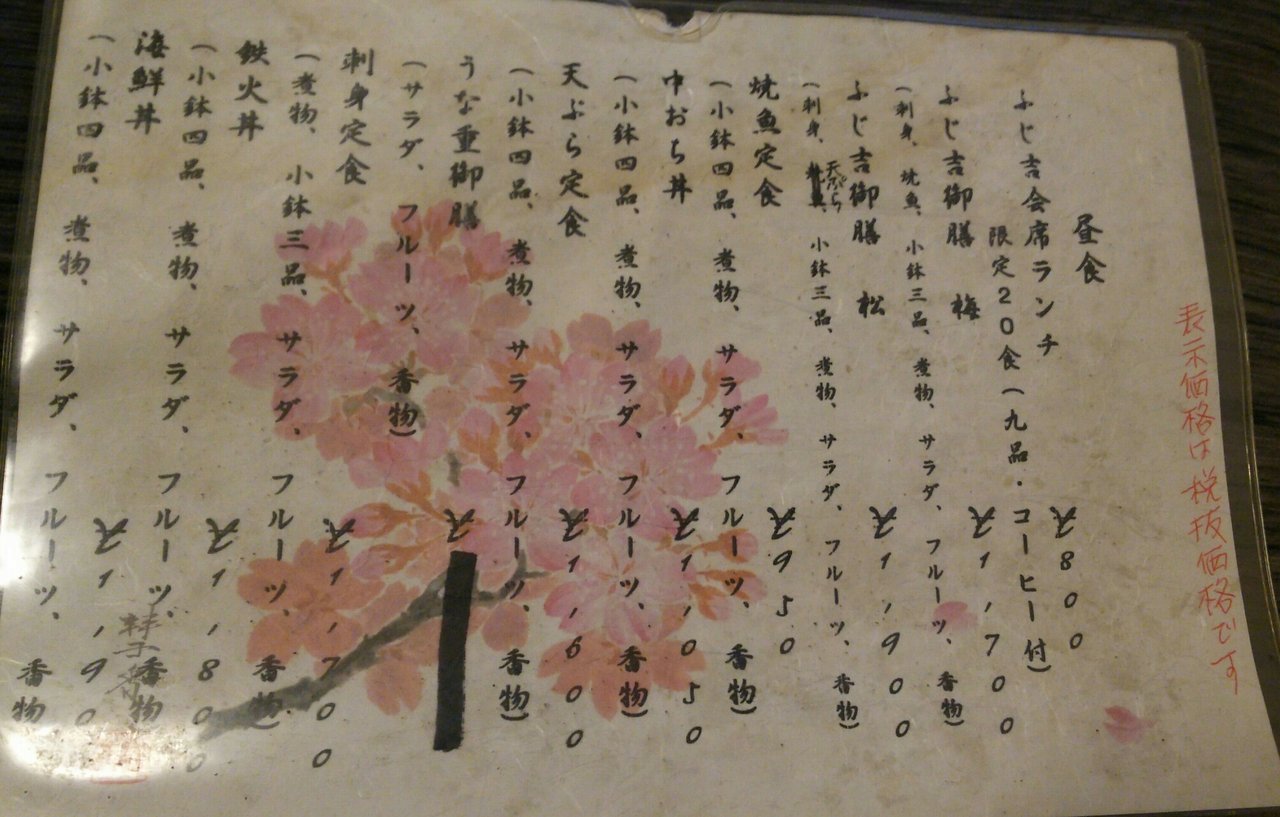 表示価格は税抜価格です
昼食
ふじ吉会席ランチ ¥800
限定20食(九品・コーヒー付)
ふじ吉御膳 梅 ¥1,700
(刺身、焼魚、小鉢三品、煮物、サラダ、フルーツ、香物)
ふじ吉御膳 松 ¥1,900
(刺身、天ぷら、小鉢三品、煮物、サラダ、フルーツ、香物)
焼魚定食 ¥950
(小鉢四品、煮物、サラダ、フルーツ、香物)
中おち丼 ¥1,050
(小鉢四品、煮物、サラダ、フルーツ、香物)
天ぷら定食 ¥1,600
(小鉢四品、煮物、サラダ、フルーツ、香物)
うな重御膳 ¥
(サラダ、フルーツ、香物)
刺身定食 ¥1,700
(煮物、小鉢三品、サラダ、フルーツ、香物)
鉄火丼 ¥1,800
(小鉢四品、煮物、サラダ、フルーツ、香物
海鮮丼 ¥1,90
(小鉢四品、煮物、サラダ、フルーツ、香物